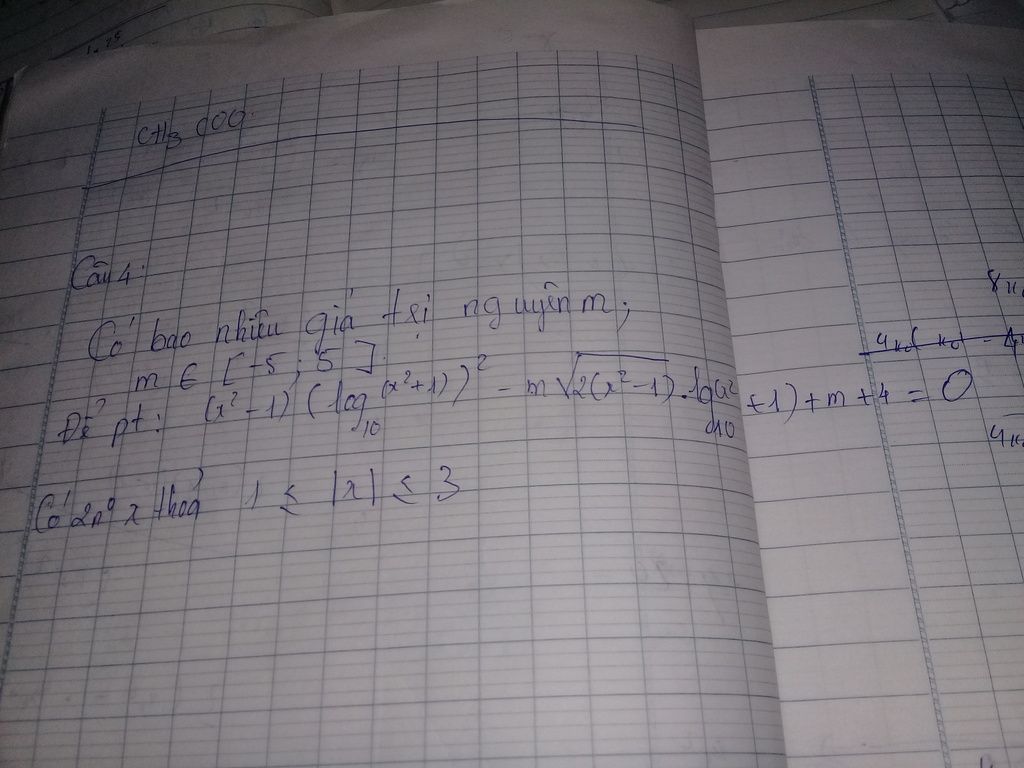 CH3 COO.
Câu 4:
Có bao nhiêu giá trị nguyên m;
m ∈ [-5; 5].
Để pt: (x² - 1) (log₁₀ (x² + 1))² - m√2(x² - 1) . log₁₀ (x² + 1) + m + 4 = 0
Có 2n⁰ x thoả 1 ≤ |x| ≤ 3